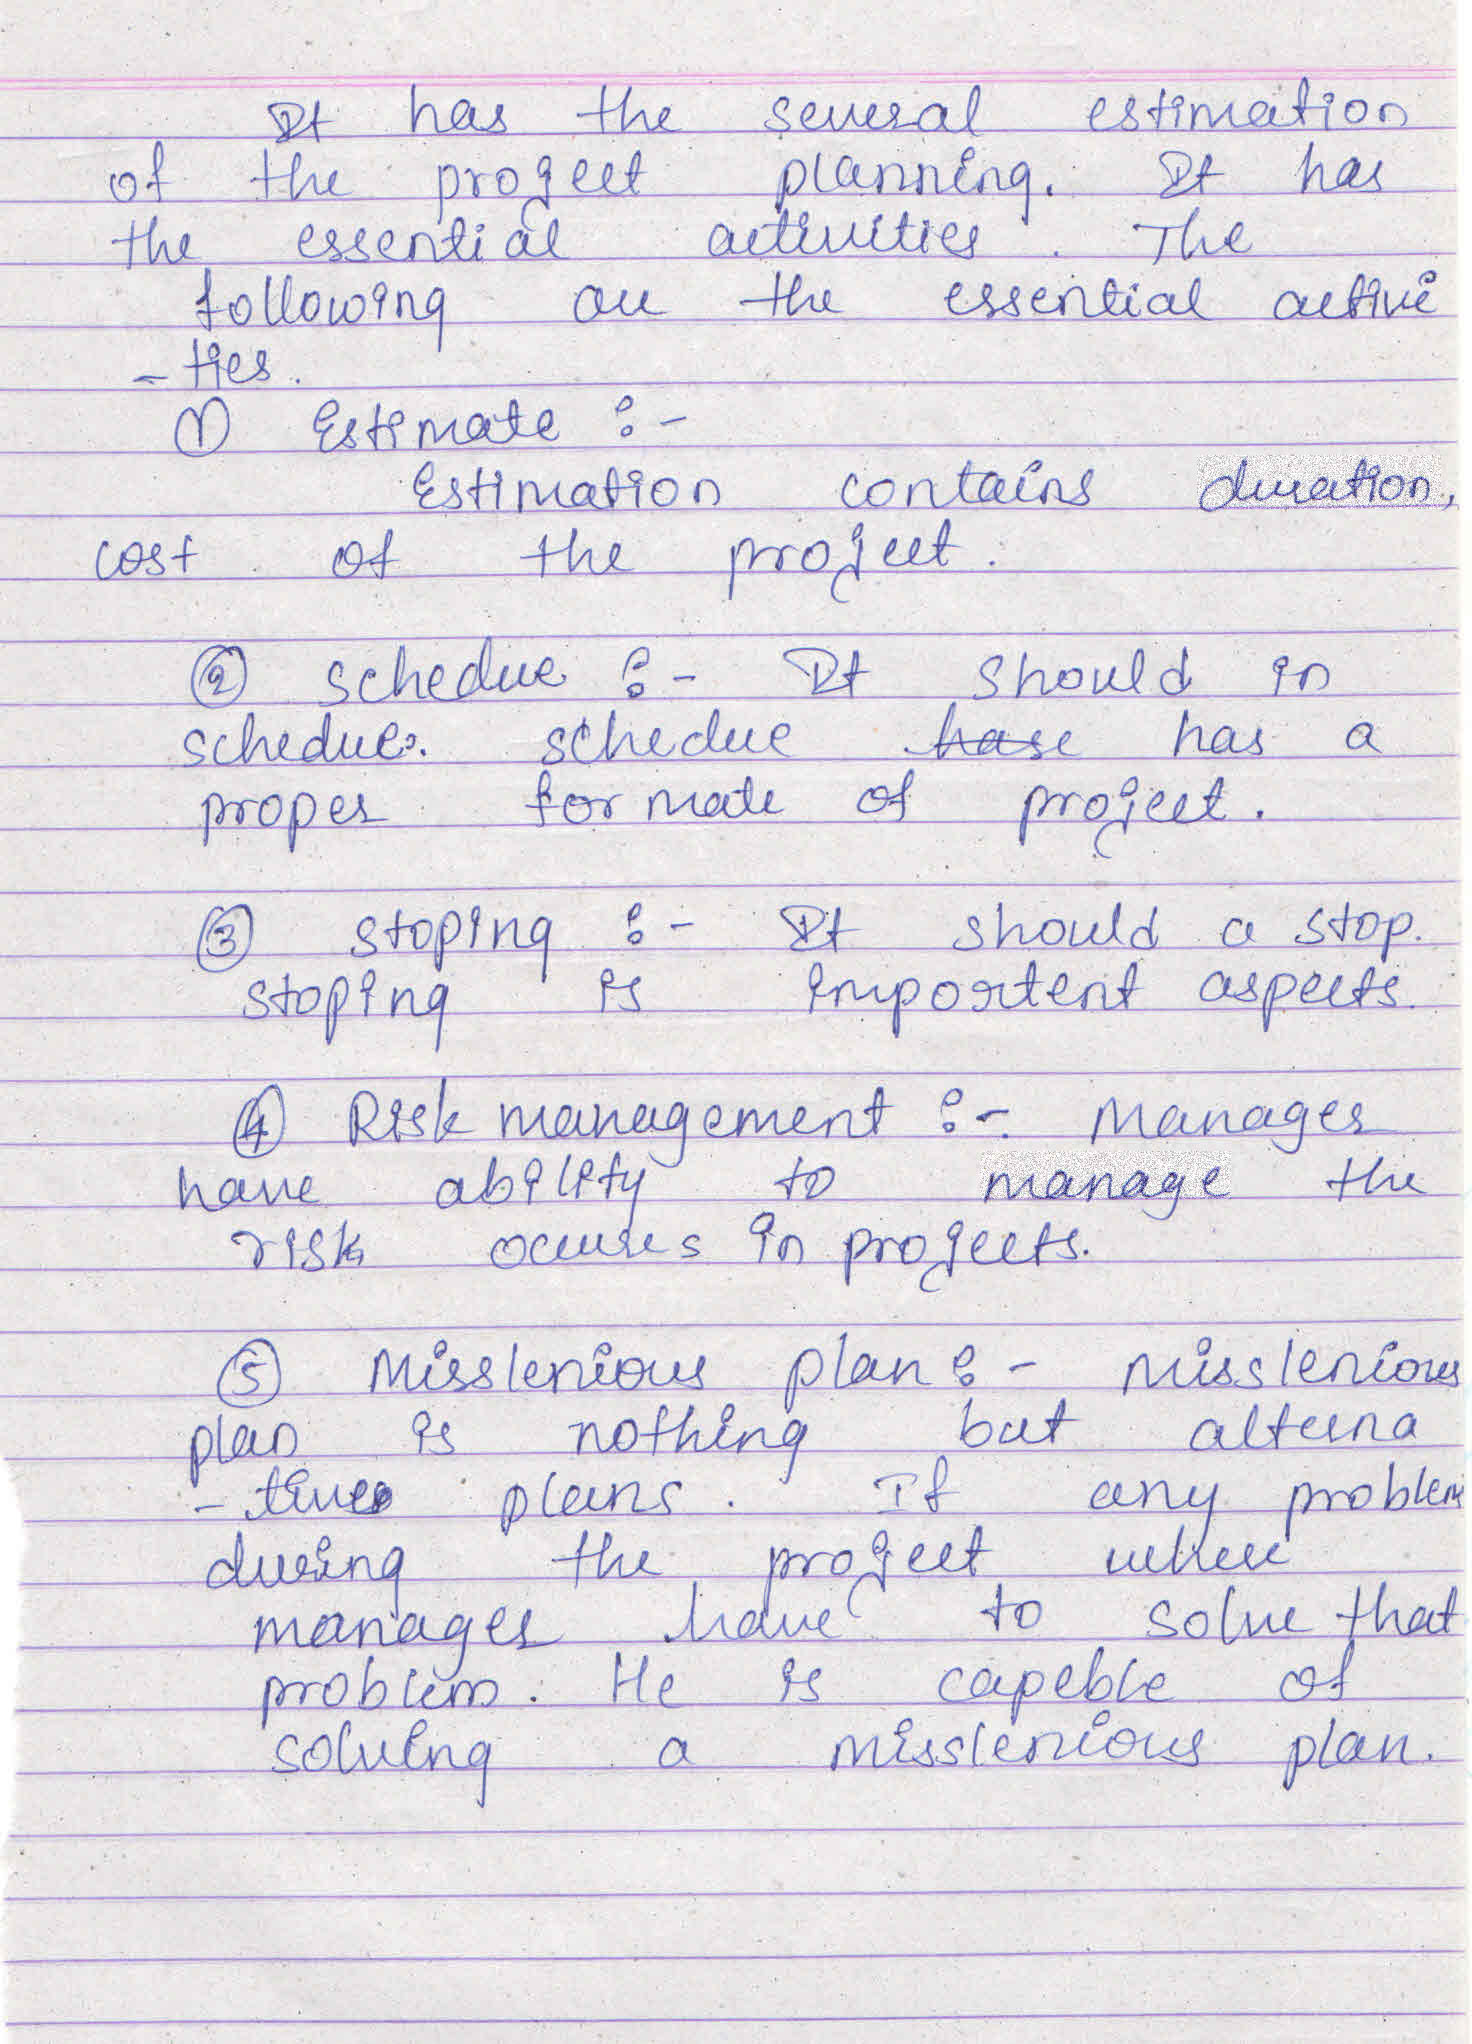 It has the several estimation
of the project planning. It has
the essential activities. The
following are the essential activi
- ties.
① Estimate :-
Estimation contains duration,
cost of the project.
② Schedue :- It should in
schedue. schedue hase has a
proper formate of project.
③ Stoping :- It should a stop.
stoping is importent aspects.
④ Risk management :- Manager
have ability to manage the
risk occures in projects.
⑤ Misslenious plan :- misslenious
plan is nothing but alterna
- tive plans. If any problem
during the project where
manager have to solve that
problem. He is capeble of
solving a misslenious plan.